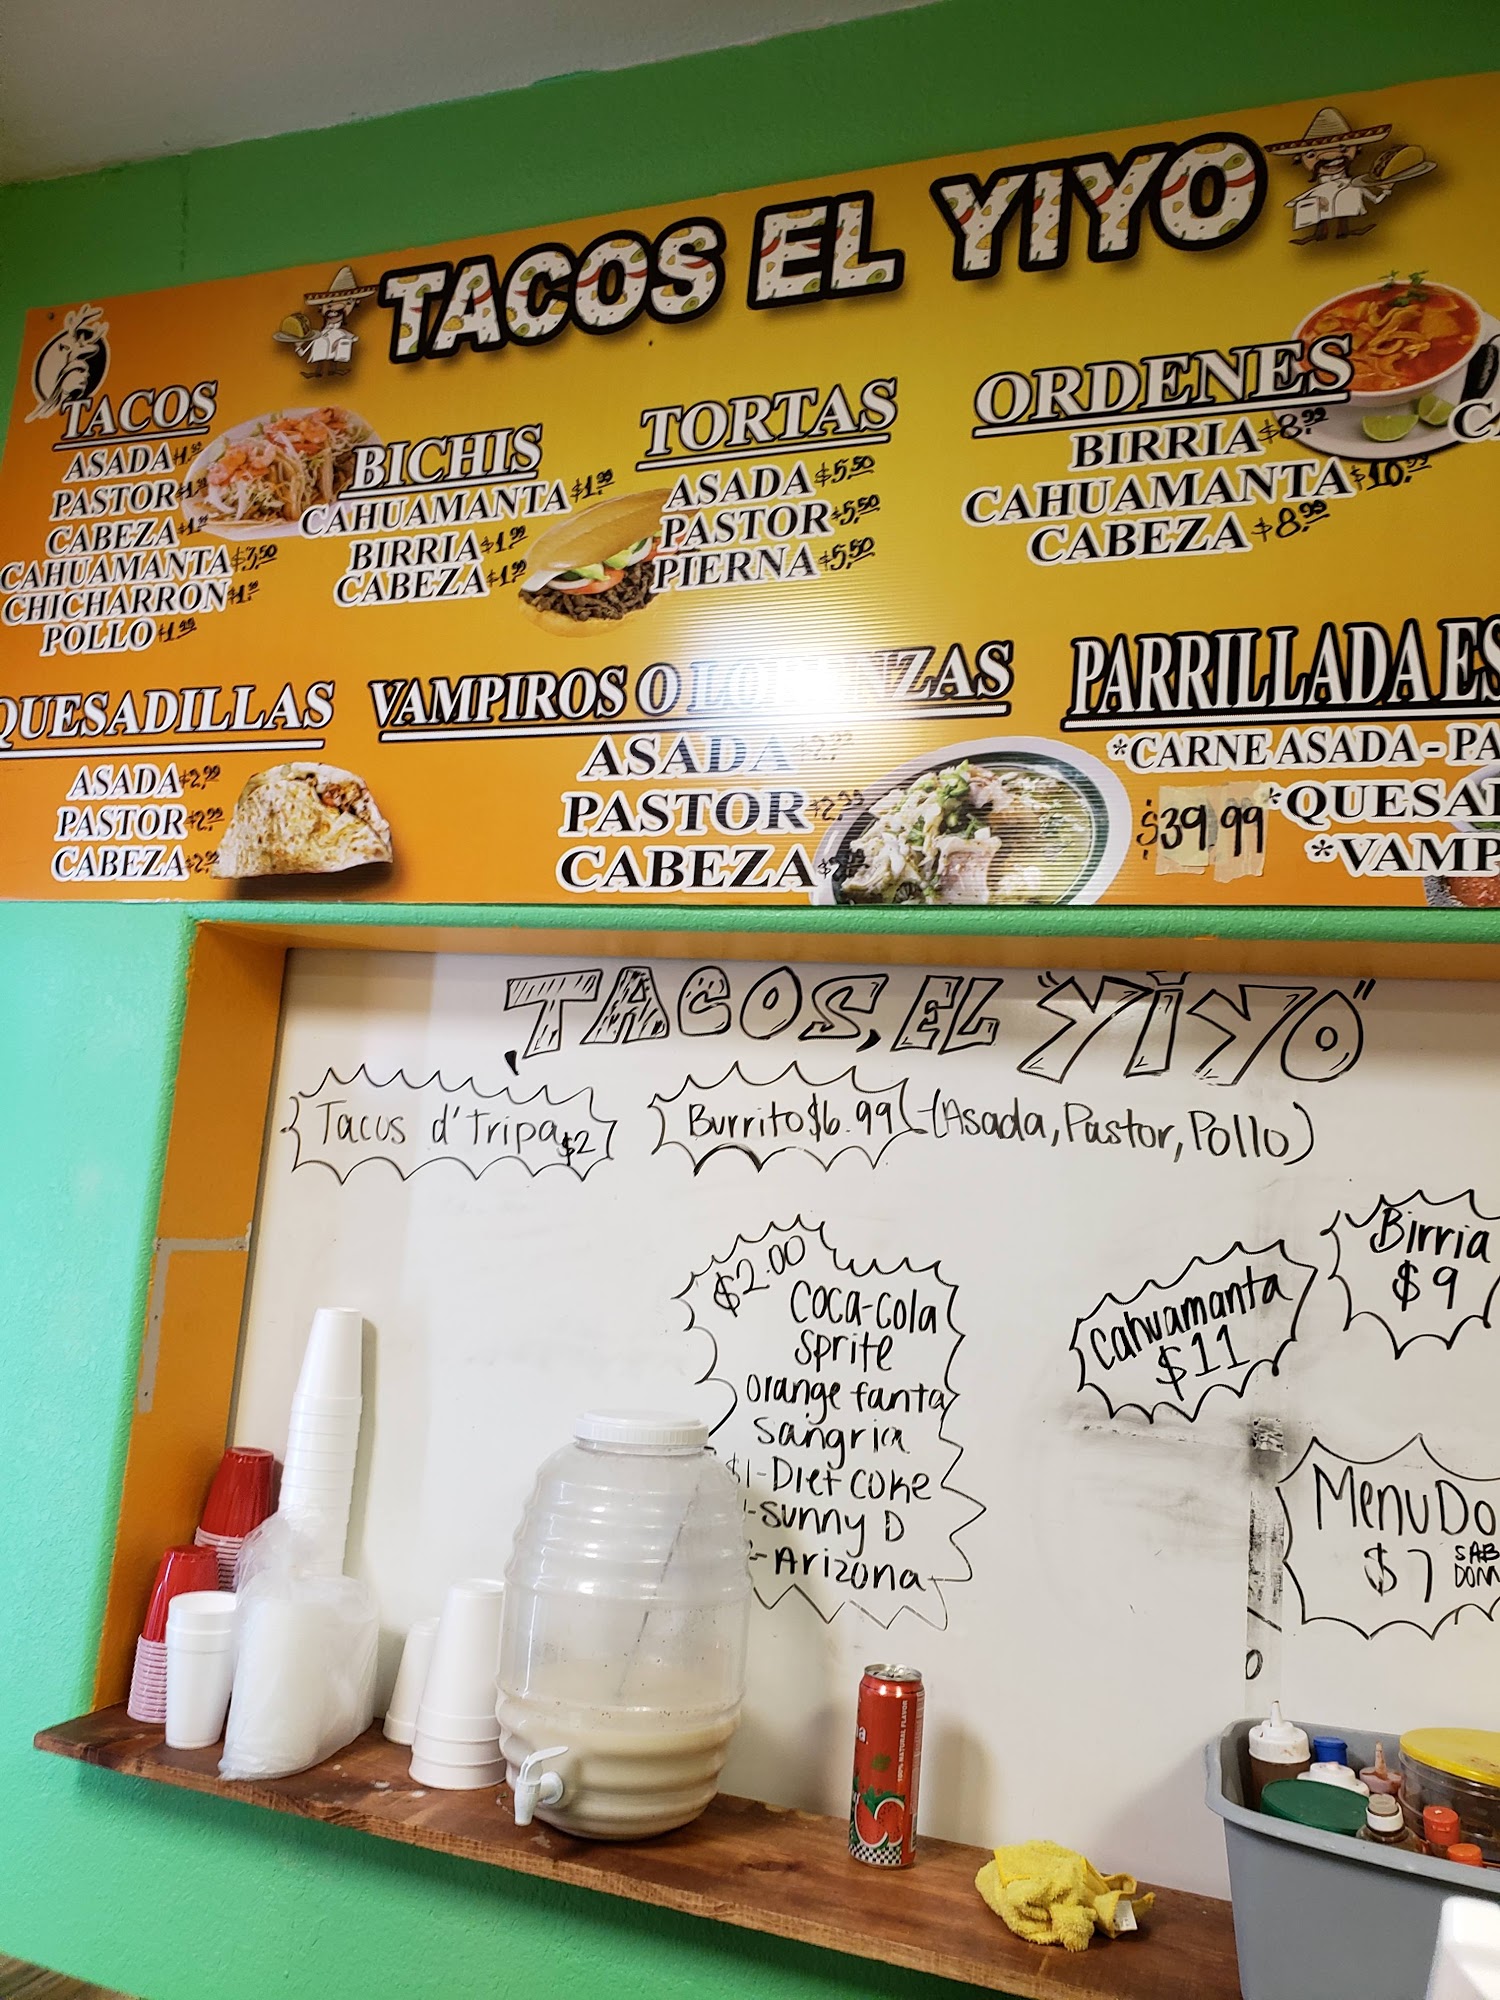 TACOS EL YIYO
TACOS
ASADA $1.99
PASTOR $1.99
CABEZA $1.99
CAHUAMANTA $3.50
CHICHARRON $1.99
POLLO $1.99
BICHIS
CAHUAMANTA $1.99
BIRRIA $1.99
CABEZA $1.99
TORTAS
ASADA $5.50
PASTOR $5.50
PIERNA $5.50
ORDENES
BIRRIA $8.99
CAHUAMANTA $10.99
CABEZA $8.99
QUESADILLAS
ASADA $2.99
PASTOR $2.99
CABEZA $2.99
VAMPIROS O LORENZAS
ASADA $2.99
PASTOR $2.99
CABEZA
PARRILLADA ES
*CARNE ASADA - PA
$39.99 *QUESA
*VAMP
TACOS, EL "YiYO"
Tacos d' Tripa $2
Burrito $6.99 - (Asada, Pastor, Pollo)
$2.00
Coca-cola
Sprite
Orange fanta
Sangria
$1-Diet Coke
-Sunny D
-Arizona
Cahuamanta
$11
Birria
$9
MenuDo
$7 SAB
DOM
100% NATURAL FLAVOR